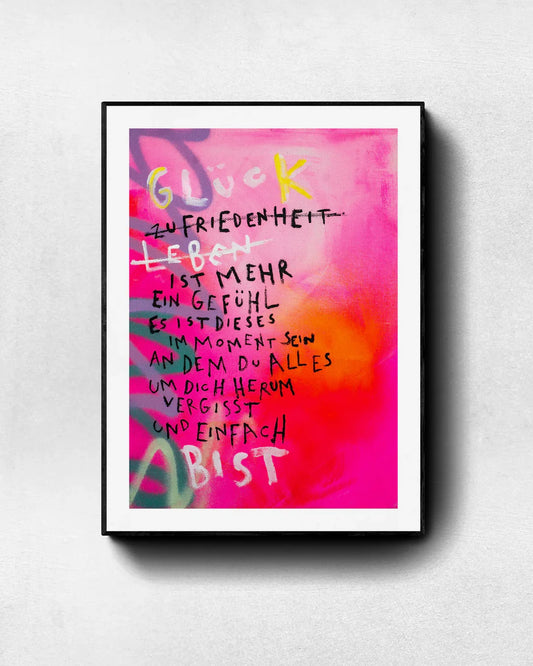 GLÜCK
ZUFRIEDENHEIT
LEBEN
IST MEHR
EIN GEFÜHL
ES IST DIESES
IM MOMENT SEIN
AN DEM DU ALLES
UM DICH HERUM
VERGISST
UND EINFACH
BIST